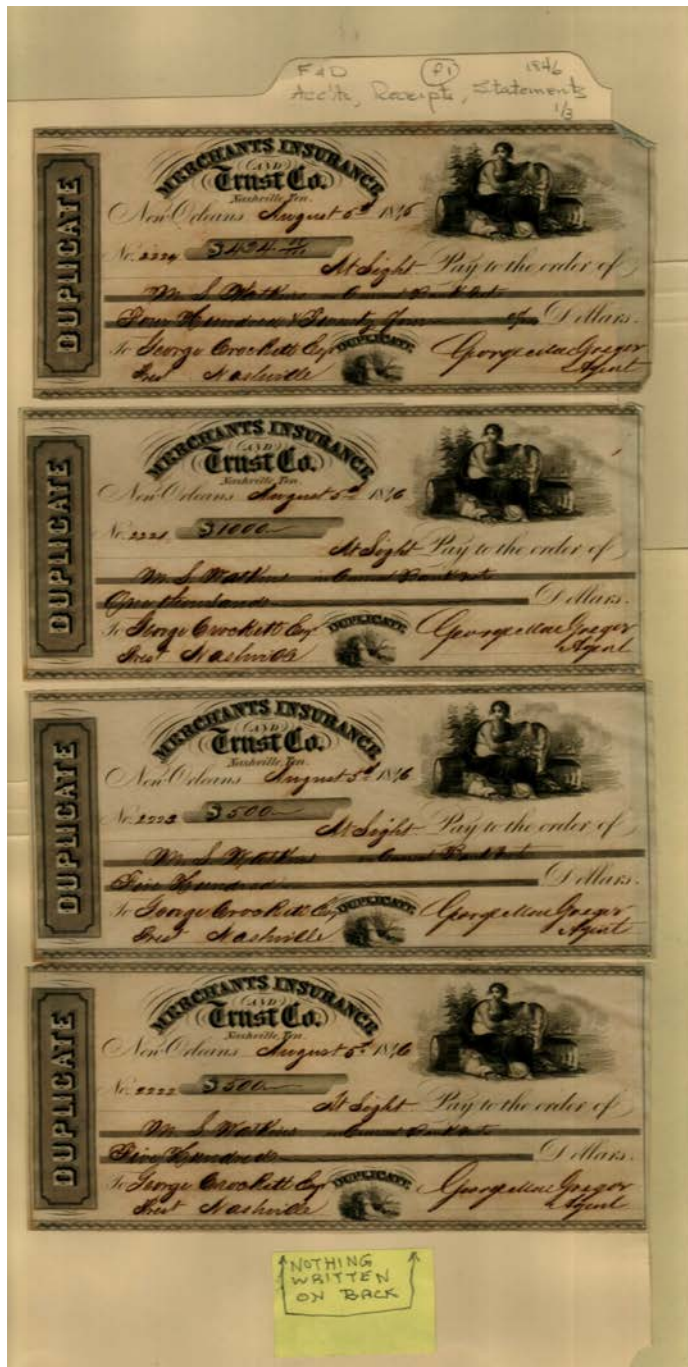 F & D P1 1846
Acc'ts, Receipts, Statements
1/3
DUPLICATE
MERCHANTS INSURANCE
(AND)
Trust Co.
Nashville, Ten.
New Orleans August 5th 1846
No. 2224 $424
At Sight Pay to the order of
M. S. Watkins in Current Bank
Four Hundred & Twenty Four Dollars.
To George Crockett Esq DUPLICATE George Mac Gregor
Prest Nashville Agent
DUPLICATE
MERCHANTS INSURANCE
(AND)
Trust Co.
Nashville, Ten.
New Orleans August 5th 1846
No. 2221 $1000
At Sight Pay to the order of
M. S. Watkins in Current Bank
One thousand Dollars.
To George Crockett Esq DUPLICATE George Mac Gregor
Prest Nashville Agent
DUPLICATE
MERCHANTS INSURANCE
(AND)
Trust Co.
Nashville, Ten.
New Orleans August 5th 1846
No. 2223 $500
At Sight Pay to the order of
M. S. Watkins in Current Bank
Five Hundred Dollars.
To George Crockett Esq DUPLICATE George Mac Gregor
Prest Nashville Agent
DUPLICATE
MERCHANTS INSURANCE
(AND)
Trust Co.
Nashville, Ten.
New Orleans August 5th 1846
No. 2222 $500
At Sight Pay to the order of
M. S. Watkins in Current Bank
Five Hundred Dollars.
To George Crockett Esq DUPLICATE George Mac Gregor
Prest Nashville Agent
NOTHING
WRITTEN
ON BACK